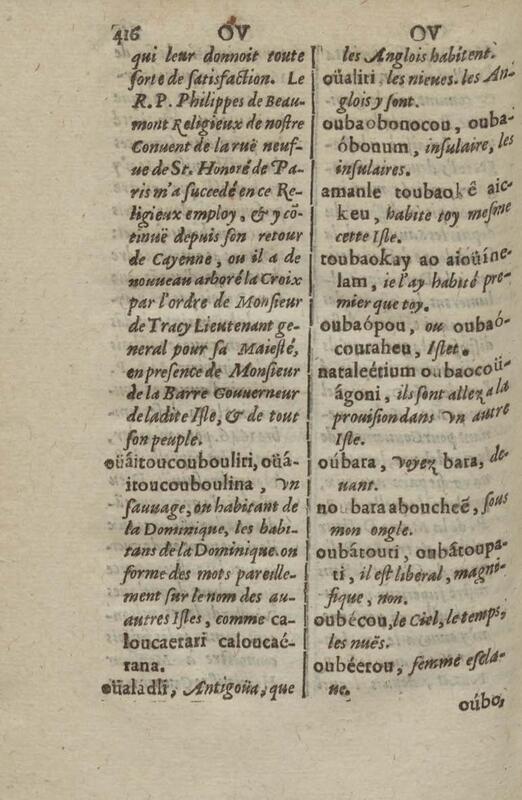 416 OV OV
qui leur donnoit toute
sorte de satisfaction. Le
R. P. Philippes de Beau-
mont Religieux de nostre
Conuent de la ruë neuf-
ue de St. Honoré de Pa-
ris m'a succedé en ce Re-
ligieux employ, & y cō-
tinuë depuis son retour
de Cayenne, ou il a de
nouueau arboré la Croix
par l'ordre de Monsieur
de Tracy Lieutenant ge-
neral pour sa Maiesté,
en presence de Monsieur
de la Barre Gouuerneur
de ladite Isle, & de tout
son peuple.
oüáitoucoubouliri, oüá-
itoucouboulina, vn
sauuage, ou habitant de
la Dominique, les habi-
tans de la Dominique. on
forme des mots pareille-
ment sur le nom des au-
autres Isles, comme ca-
loucaerari caloucaé-
rana.
oüaládli, Antigoüa, que
les Anglois habitent.
oüaliri. les nieues. les An-
glois y sont.
oubaobonocou, ouba-
óbonum, insulaire, les
insulaires.
amanle toubaokê aic-
keu, habite toy mesme
cette Isle.
toubaokay ao aioüíne-
lam, ie l'ay habité pre-
mier que toy.
oubaópou, ou oubaó-
couraheu, Islet.
nataleétium oubaocoü-
ágoni, ils sont allez a la
prouision dans vn autre
Isle.
oúbara, voyez bara, de-
uant.
no ubara aboucheẽ, sous
mon ongle.
oubátouti, oubátoupa-
ti, il est liberal, magni-
fique, non.
oubécou, le Ciel, le temps,
les nuës.
oubéerou, femme escla-
ue.
oúbo,